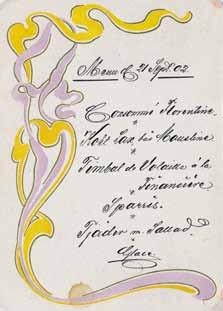 Menu d. 21 Sept. 02.
Consommé Florentine.
"
Kokt Lax, sås Mousline
"
Timbal de Volaille à la
Financière
"
Sparris.
"
Tjäder m. Sallad.
"
Glace.